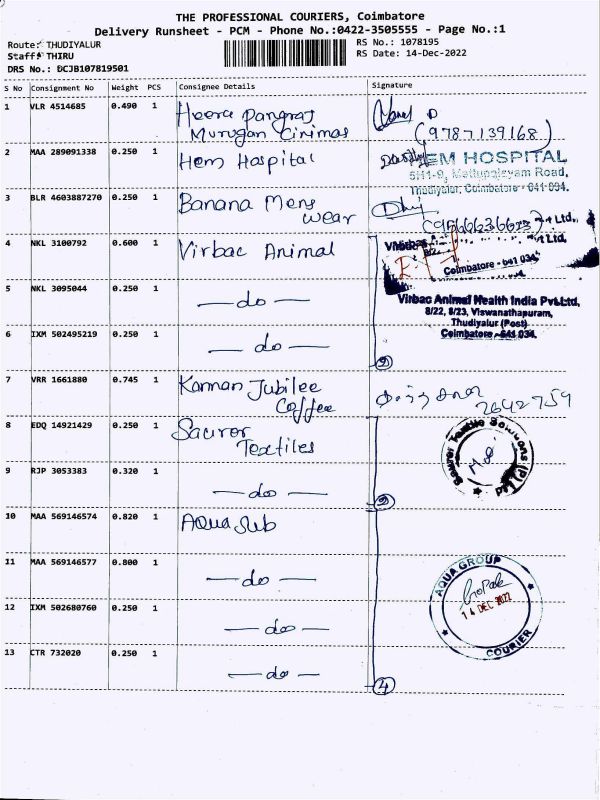 THE PROFESSIONAL COURIERS, Coimbatore
Delivery Runsheet - PCM - Phone No.:0422-3505555 - Page No.:1
Route: THUDIYALUR
RS No.: 1078195
Staff: THIRU
RS Date: 14-Dec-2022
DRS No.: DCJB107819501
S No Consignment No Weight PCS Consignee Details Signature
1 VLR 4514685 0.490 1 Heera Pangraj
Murugan Cinimas
(9787139168)
2 MAA 289091338 0.250 1 Hem Hospital
HEM HOSPITAL
Mettupalayam Road,
Thudiyalur, Coimbatore - 641 034.
3 BLR 4603887270 0.250 1 Banana Mens
wear
4 NKL 3100792 0.600 1 Virbac Animal
Coimbatore - 641 034
5 NKL 3095044 0.250 1 do
Virbac Animal Health India Pvt.Ltd,
8/22, 8/23, Viswanathapuram,
Thudiyalur (Post)
Coimbatore - 641 034.
6 IXM 502495219 0.250 1 do
7 VRR 1661880 0.745 1 Kannan Jubilee
Coffee
2642759
8 EDQ 14921429 0.250 1 Saurer
Textiles
Saurer Textile Solutions (P) Ltd
9 RJP 3053383 0.320 1 do
10 MAA 569146574 0.820 1 Aqua Sub
11 MAA 569146577 0.800 1 do
AQUA GROUP
14 DEC 2022
COURIER
12 IXM 502680760 0.250 1 do
13 CTR 732020 0.250 1 do
4